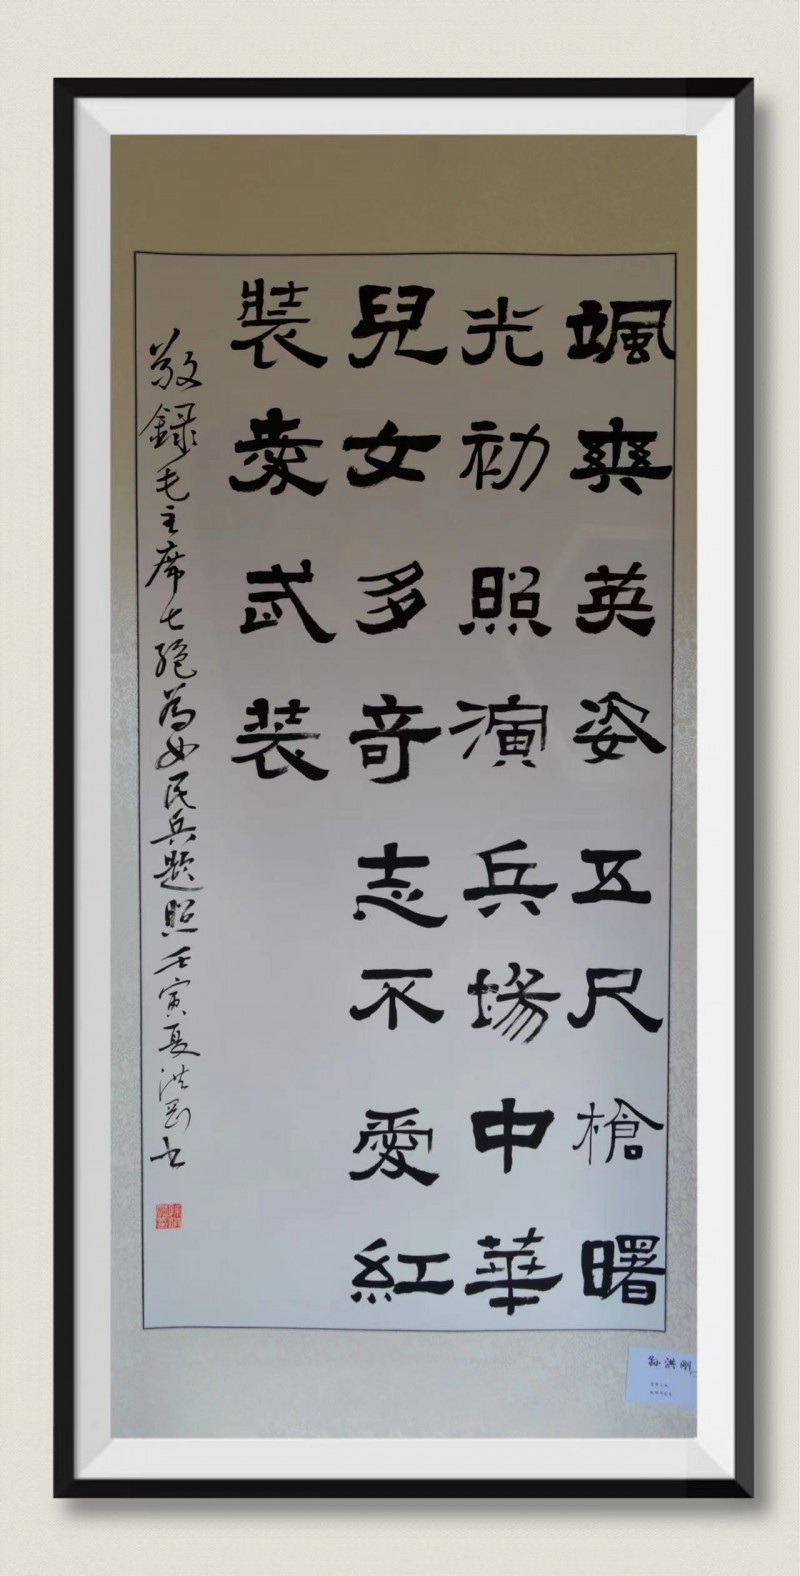 颯爽英姿五尺槍曙
光初照演兵場中華
兒女多奇志不愛紅
裝愛武装
敬録毛主席七絕為女民兵題照壬寅夏洪剛书
孙洪刚